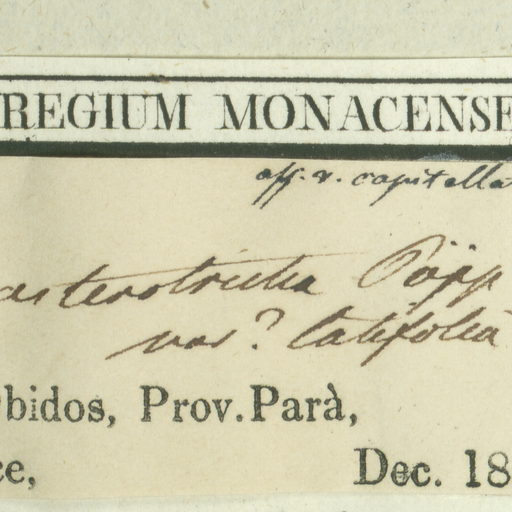 REGIUM MONACENSE
aff. v. capitella
asterotricha Pöpp
var? latifolia
bidos, Prov. Parà,
ce,
Dec. 18